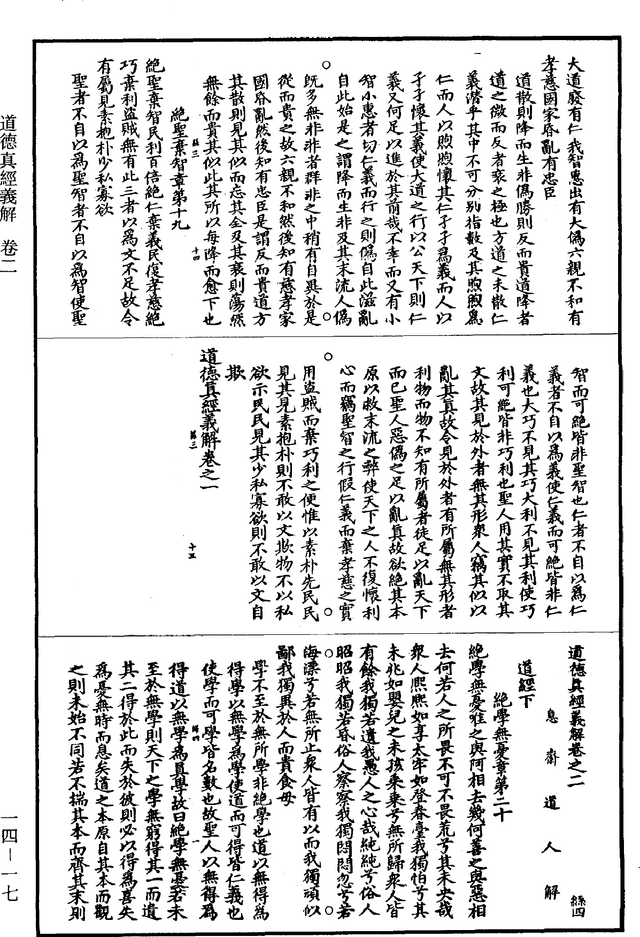 道德真經義解 卷二
大道廢有仁義智惠出有大偽六親不和有
孝慈國家昏亂有忠臣
道散則降而生非偽勝則反而貴道降者
道之微而反者衰之極也方道之未散仁
義潛乎其中不可分別指數及其煦煦為
仁而人以煦煦懷其仁孑孑為義而人以
孑孑懷其義使大道之行以公天下則仁
義又何足以進於其前哉不幸而又有小
智小惠者切仁義而行之則偽自此滋亂
自此始是之謂降而生非及其末流人偽
既多無非非者群非之中稍有自異於是
從而貴之故六親不和然後知有慈孝家
國昏亂然後知有忠臣是謂反而貴道方
其散則見其似而忘其全及其衰則蕩然
無餘而貴其似此其所以每降而愈下也
絕聖棄智章第十九
絕聖棄智民利百倍絕仁棄義民復孝慈絕
巧棄利盜賊無有此三者以為文不足故令
有屬見素抱朴少私寡欲
聖者不自以為聖智者不自以為智使聖
智而可絕皆非聖智也仁者不自以為仁
義者不自以為義使仁義而可絕皆非仁
義也大巧不見其巧大利不見其利使巧
利可絕皆非巧利也聖人用其實不取其
文故其見於外者無其形衆人竊其似以
亂其真故令見於外者有所屬無其形者
利物而物不知有所屬者徒足以亂天下
而已聖人惡偽之足以亂真故欲絕其本
原以救末流之弊使天下之人不復懷利
心而竊聖智之行假仁義而棄孝慈之實
用盜賊而棄巧利之便惟以素朴先民民
見其見素抱朴則不敢以文欺物不以私
欲示民民見其少私寡欲則不敢以文自
欺
道德真經義解卷之一
十五
道德真經義解卷之二
息齋道人解
絲四
道經下
絕學無憂章第二十
絕學無憂唯之與阿相去幾何善之與惡相
去何若人之所畏不可不畏荒兮其未央哉
衆人熙熙如享太牢如登春臺我獨怕兮其
未兆如嬰兒之未孩乘乘兮無所歸衆人皆
有餘我獨若遺我愚人之心哉純純兮俗人
昭昭我獨若昏俗人察察我獨悶悶忽兮若
海漂兮若無所止衆人皆有以而我獨頑似
鄙我獨異於人而貴食母
學不至於無所學非絕學也道以無得為
得學以無學為學使道而可得皆仁義也
使學而可學皆名數也故聖人以無得為
得道以無學為真學故曰絕學無憂若未
至於無學則天下之學無窮得其一而遺
其二得於此而失於彼則必以得為喜失
為憂無時而息矣道之本原自其本而觀
之則未始不同若不揣其本而齊其末則
一四—一七